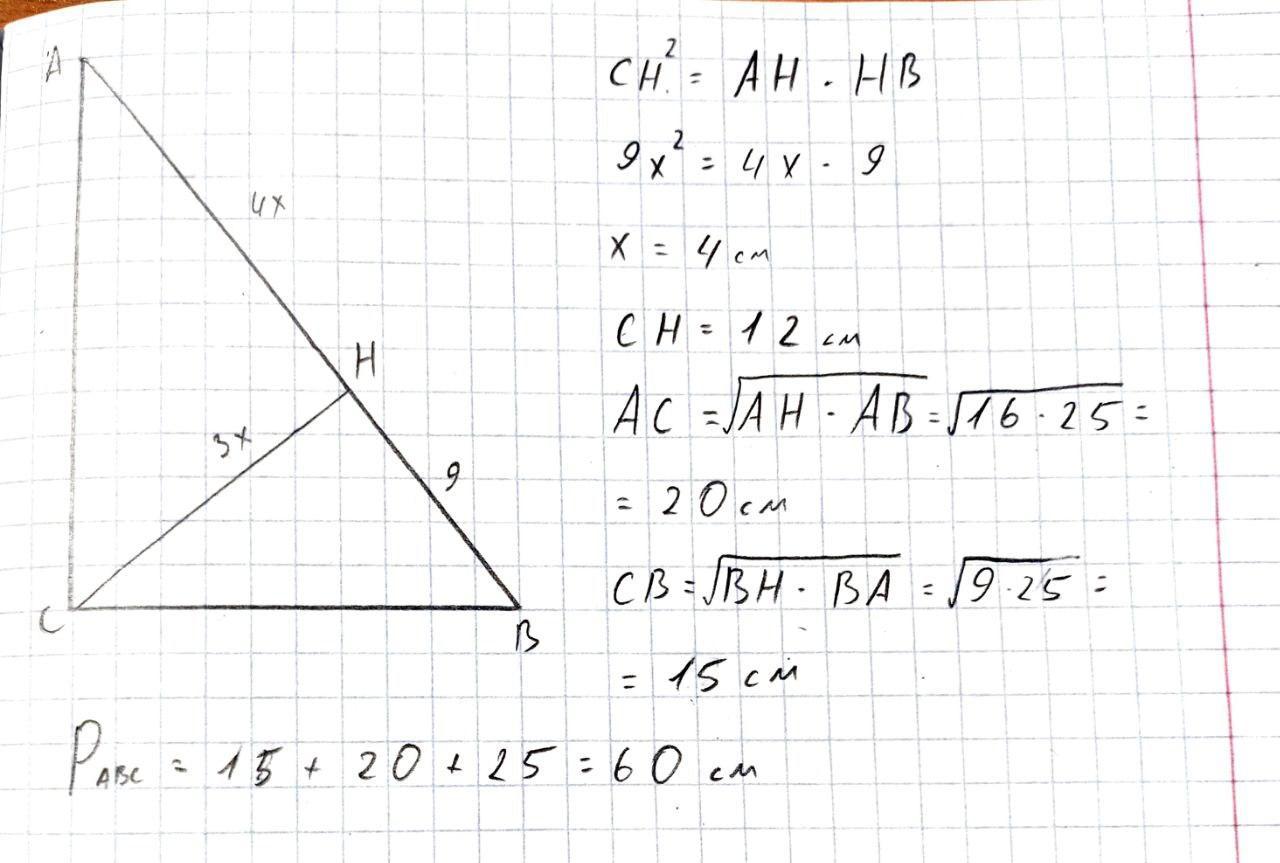 A
4x
H
3x
9
C
B
CH² = AH · HB
9x² = 4x · 9
x = 4 см
CH = 12 см
AC = √AH · AB = √16 · 25 =
= 20 см
CB = √BH · BA = √9 · 25 =
= 15 см
P_ABC = 15 + 20 + 25 = 60 см